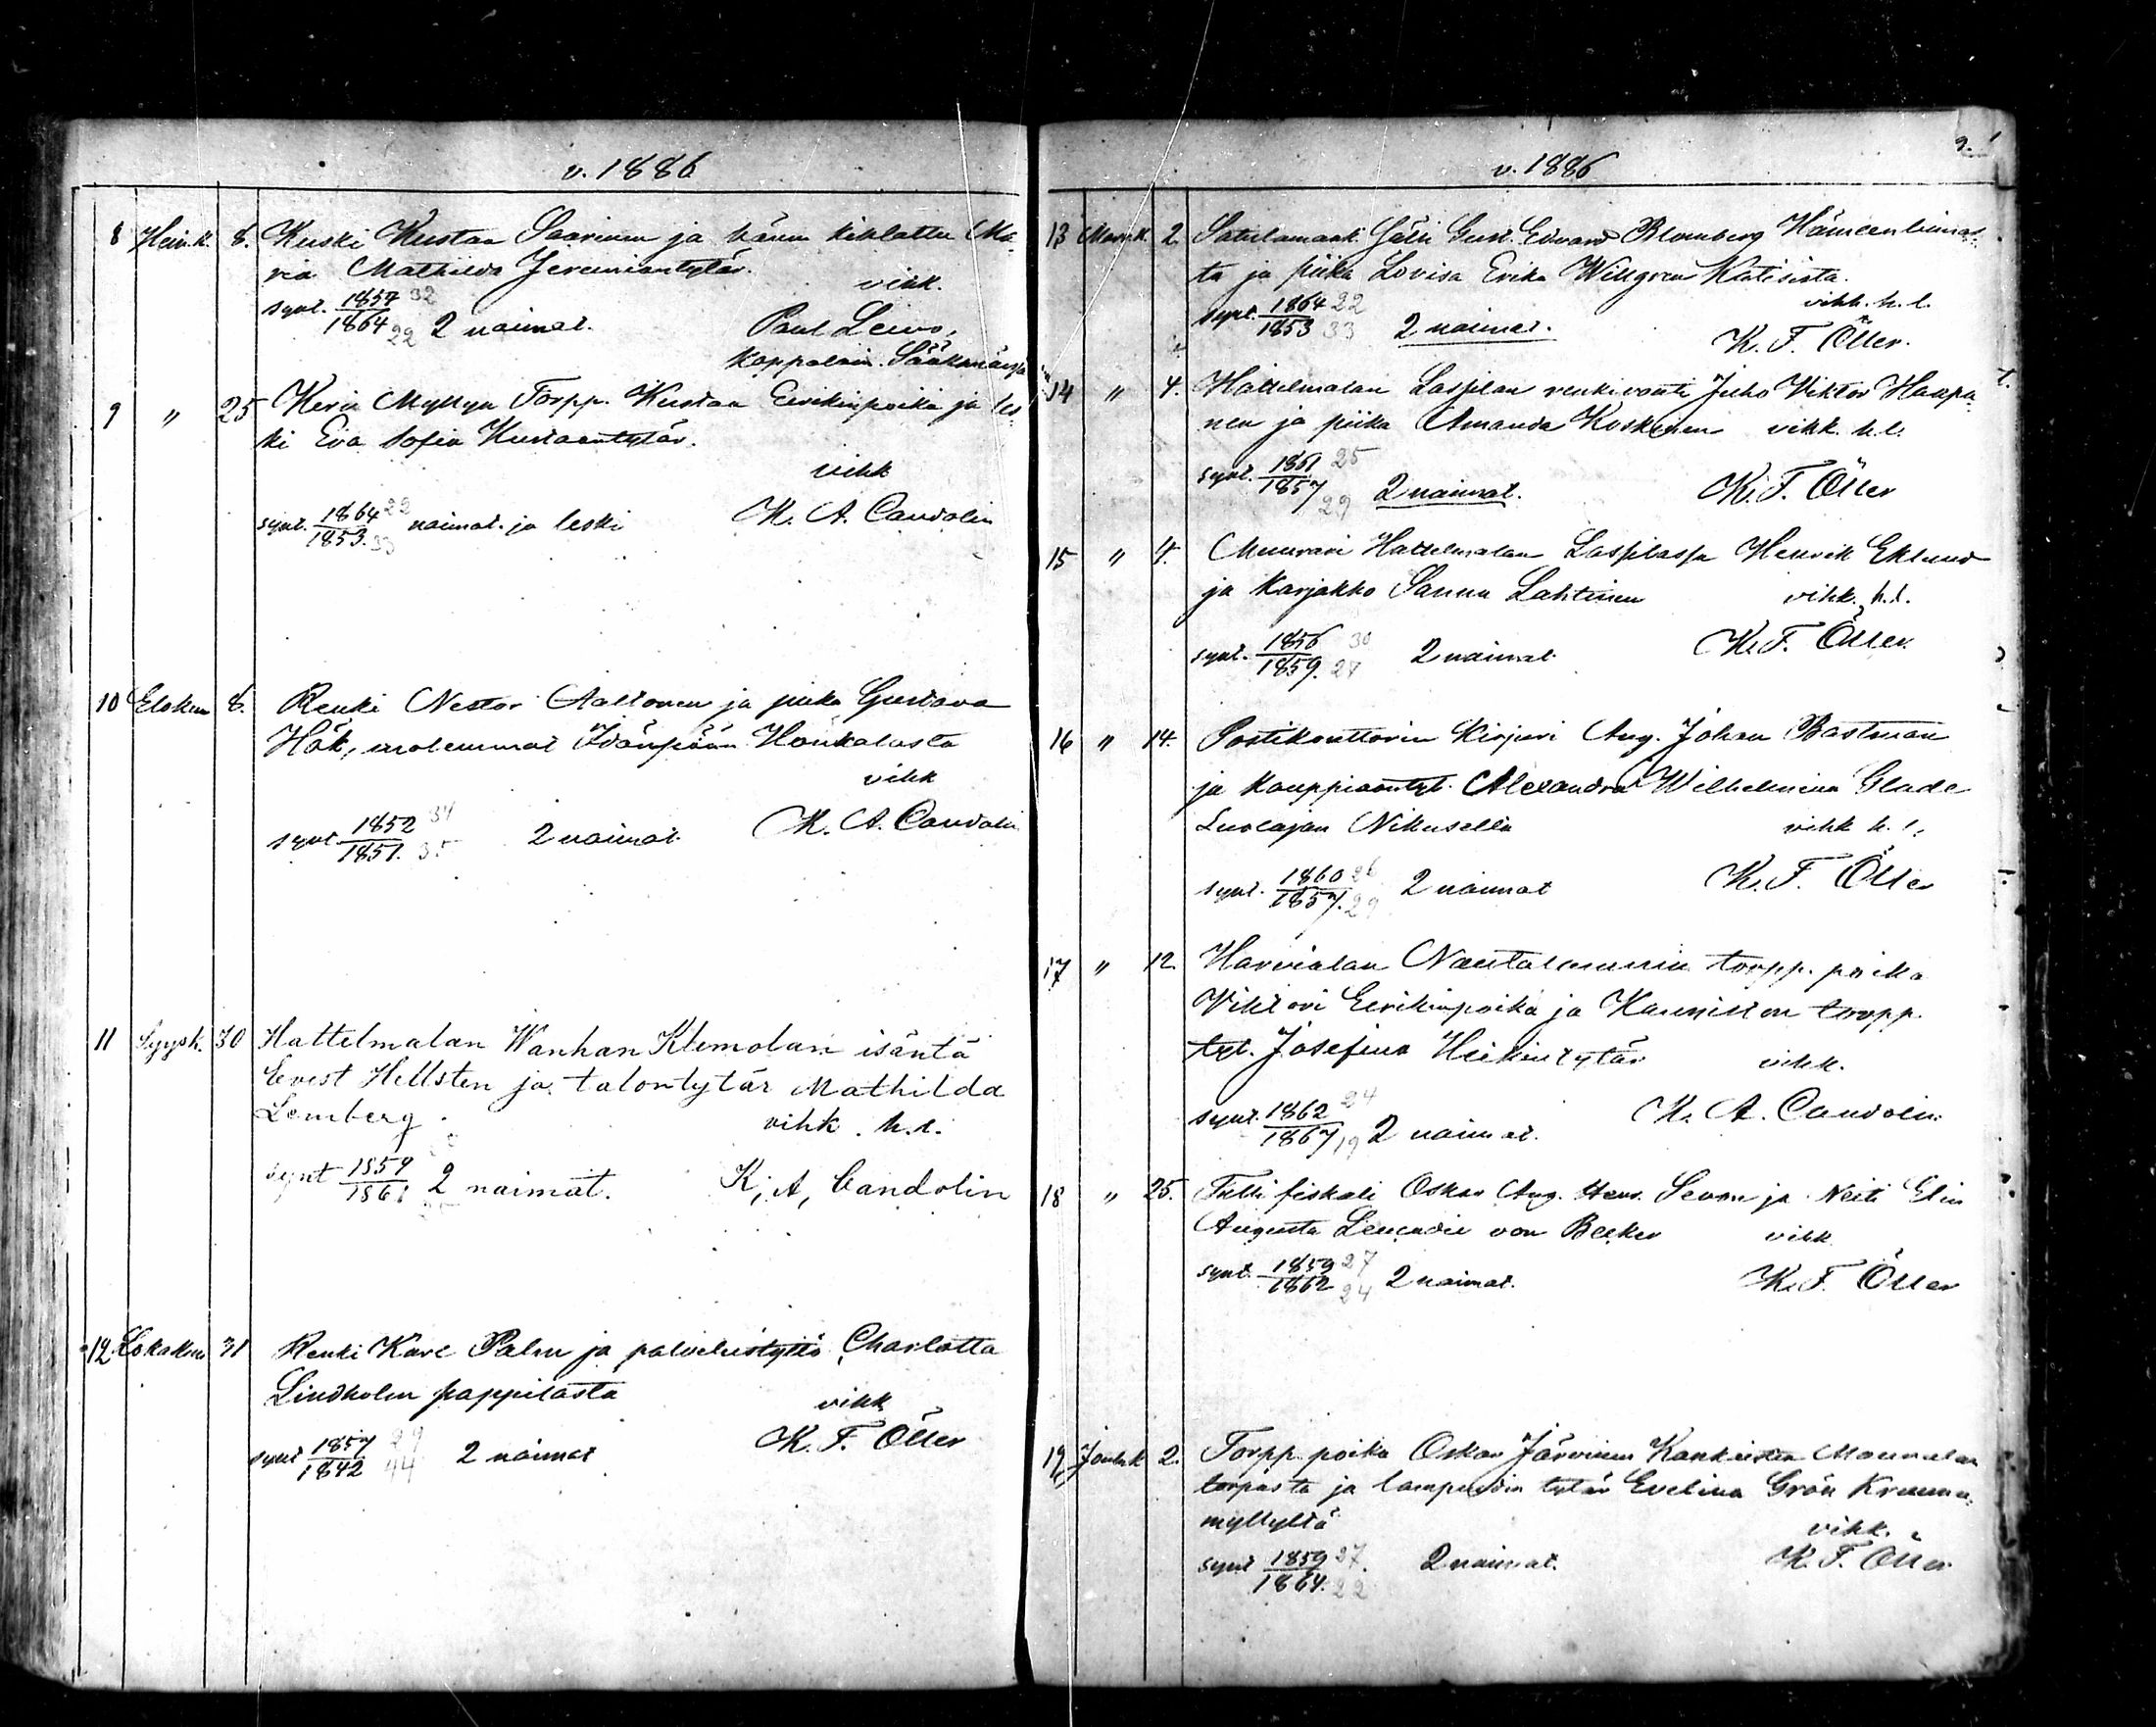 v. 1886
8 Hein.k. 8. Kuski Kustaa Saarinen ja hänen kihlattu Ma-
ria Mathilda Jeremiantytär.
vihk.
synt. 1857 32
1864 22 2 naimat.
Paul Leivo,
Kappalain. Sääksmäeja
9 " 25 Myllyn Torpp. Kustaa Eerikinpoika ja les-
ki Eva Sofia Kustaantytär.
vihk
synt. 1864 22
1853. 33 naimat. ja leski
K. A. Candolin
10 Elokuu 8. Renki Nestor Aaltonen ja piika Gustava
Hök, molemmat Idänpään Honkalasta
vihk
synt. 1852 34
1851. 35 2 naimat.
K. A. Candolin
11 Syysk. 30 Hattelmalan Wanhan Klemolan isäntä
Evest Hellsten ja talontytär Mathilda
Lemberg.
vihk. h.l.
synt 1859
1861 2 naimat.
K, A, Candolin
12 Lokakuu 31 Renki Karl Palm ja palvelustyttö Charlotta
Lindholm pappilasta
vihk
synt 1857 29
1842 44 2 naimat
K. F. Öller
v. 1886
9.
13 Marrask. 2 Satulamaak. Gust. Edvard Blomberg Hämeenlinnas-
ta ja piika Lovisa Erika Willgren Katisista.
vihk. h. l.
synt. 1864 22
1853 33 2 naimat.
K. F. Öller.
14 " 4. Hattelmalan Laspilan renkivouti Juho Viktor Haapa-
nen ja piika Amanda Koskinen vihk. h.l.
synt. 1861 25
1857 29 2 naimat.
K. F. Öller
15 " 4. Muurari Hattelmalan Laspilassa Henrik Eklund
ja Karjakko Sanna Lahtinen vihk. h.l.
synt. 1856 30
1859. 27 2 naimat.
K. F. Öller
16 " 14. Postikonttorin Kirjuri Aug. Johan Bastman
ja kauppiaantyt. Alexandra Wilhelmina Glade
Luolajan Nikusella vihk h. l.
synt. 1860 26
1857. 29 2 naimat
K. F. Öller
17 " 12. Harvialan torpp. poika
Viktori Eerikinpoika ja Kauniston torpp.
tyt. Josefina Heikintytär vihk.
synt. 1862 24
1867 19 2 naimat.
K. A. Candolin
18 " 25. Tulli fiskali Oskar Aug. Henr. ja Neiti Elin
Augusta Leucadie von Becker vihk.
synt. 1859 27
1862 24 2 naimat.
K. F. Öller
19 Jouluk 2. Torpp. poika Oskar Järvinen Kankaisten Maunulan
torpasta ja lampuodin tytär Evelina Grön
myllyltä
vihk.
synt 1859 27.
1864. 22 2 naimat.
K. F. Öller